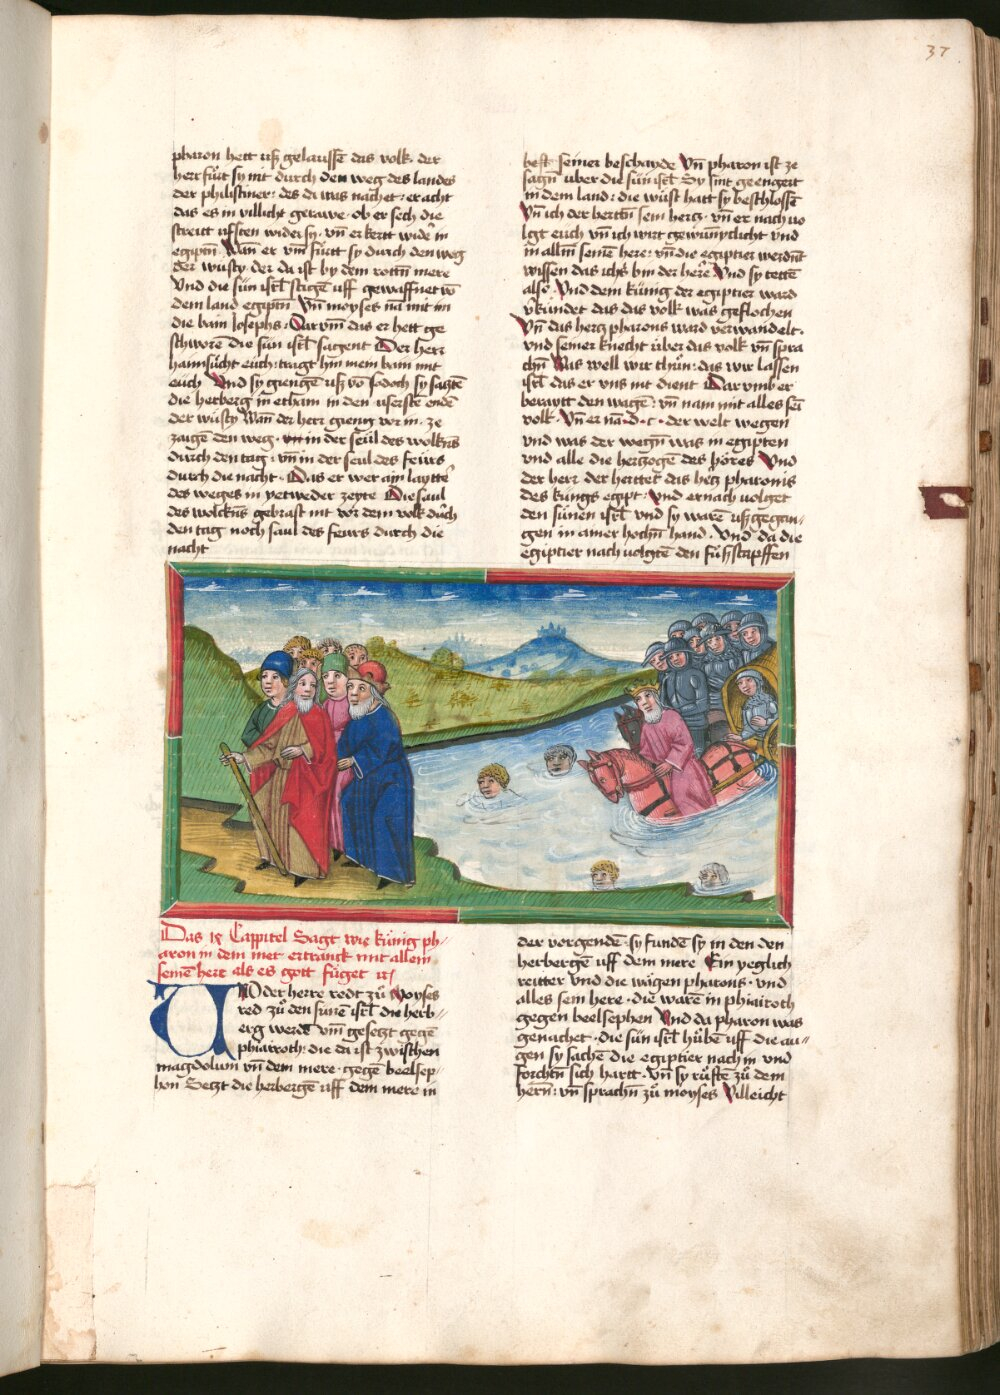 37
pharon hett usz gelaussē das volk der
herr fürt sy mit durch den weg des landes
der philistiner: des da was nächet: er acht
das es in villicht gerawe · ob er sech die
streitt ufsten wider sy · vn̄ er kertt widē in
egiptn̄ · Wan er vm̄ fürtt sy durch den weg
der wüsty der da ist by dem rottn̄ mere
Vnd die sün isrl̄ stigē uff gewaffnet vō
dem land egiptn̄ Vn̄ moyses na mit im
die bain Josephs: Dar vm̄ das er hett ge
schworē die sün isrl̄ sagent Der herr
haimsücht euch: tragt hin̄ mein bain mit
euch Vnd sy giengē usz vō sodoch sy satztē
die herberg in̄ etham in den userstē endē
der wüsty Wan der herr gieng vor in · ze
zaigē den weg · in der seül des wolkn̄s
durch den tag: vn̄ in der seul des feürs
durch die nacht · Das er wer ain laytte͛
des weges in yetweder zeyte Die saul
des wolckn̄s gebrast nit vor dem volk dūch
den tag noch saul des feurs durch die
nacht
heft seiner beschayde Vn̄ pharon ist ze
sagn̄ über die sün isrl̄ Sy sint geengert
in dem land: die wüst hatt sy beschlossē
Vn̄ ich der hertten̄ sein hertz · vn̄ er nach vo
lgt euch vn̄ ich wirt gewünnclicht vnd
in allm̄ seinē here: vn̄ die egiptier werdn̄t
wissen das ichs bin der herē Vnd sy tettē
also Vnd dem künig der egiptier ward
v͛kündet das das volk was geflochen
Vn̄ das hertz pharons ward verwandelt ·
vnd seiner knecht über das volk vn̄ spra
chn̄ Was well wir thün: das wir lassen
isrl̄ das er vns mit dient Dar vmb er
beraytt den wagē: vn̄ nam mit alles sei
volk · Vn̄ er nā · d · c · der welt wegen
vnd was der wegn̄ was in egipten
vnd alle die hertzogē des höres Vnd
der herr der herttet das hertz pharonis
des küngs egipt: vnd er nach volget
den sünen isrl̄ vnd sy warē usz gegan-
gen in ainer hochn̄ hand · Vnd da die
egiptier nach volgtē den füszstapffen
Das ix Cappitel Sagt wie künig ph-
aron in dem mer ertranck mit allem
seinē herr als es gott füget ix
UND der herre redt zü Moyses
red zü den sünē isrl̄ die herb-
erg werdē vm̄ gesetzt gegē
phiaroth: die da ist zwischen
magdolum vn̄ dem mere · gegē beelsep-
hon Setzt die herbergē uff dem mere in
der vorgendē · sy fundē sy in den den
herbergē uff dem mere Ein yeglich
reitter vnd die wägen pharons · vnd
alles sein here · die warē in phiairoth
gegen beelsephen Vnd da pharon was
genachet · die sün isrl̄ hübē uff die au-
gen sy sachē die egiptier nach in vnd
forchtn̄ sich hartt · Vn̄ sy rüftē zü dem
hern̄: vn̄ sprachn̄ zü moyses Villeicht